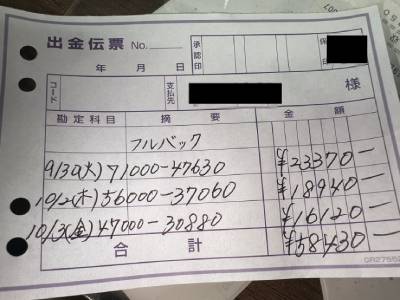 出金伝票 No.
承認印
年 月 日
コード
支払先
様
勘定科目 摘要 金額
フルバック
9/30(火) 71000-47630 ¥23370-
10/2(木) 56000-37060 ¥18940-
10/3(金) 47000-30880 ¥16120-
合計 ¥58430-